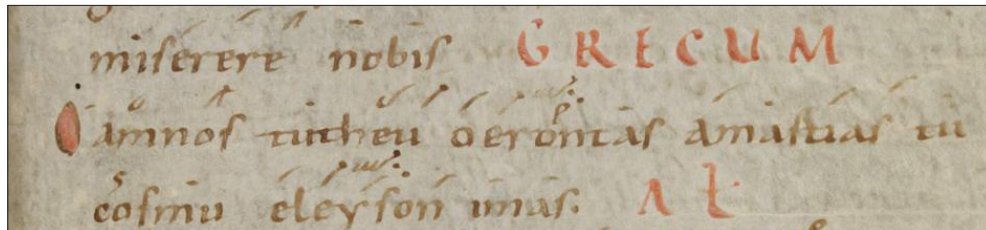 miserere nobis GRECUM
O amnos tutheu oerontas amastias tu
cosmu eleyson imas. Λ Ł